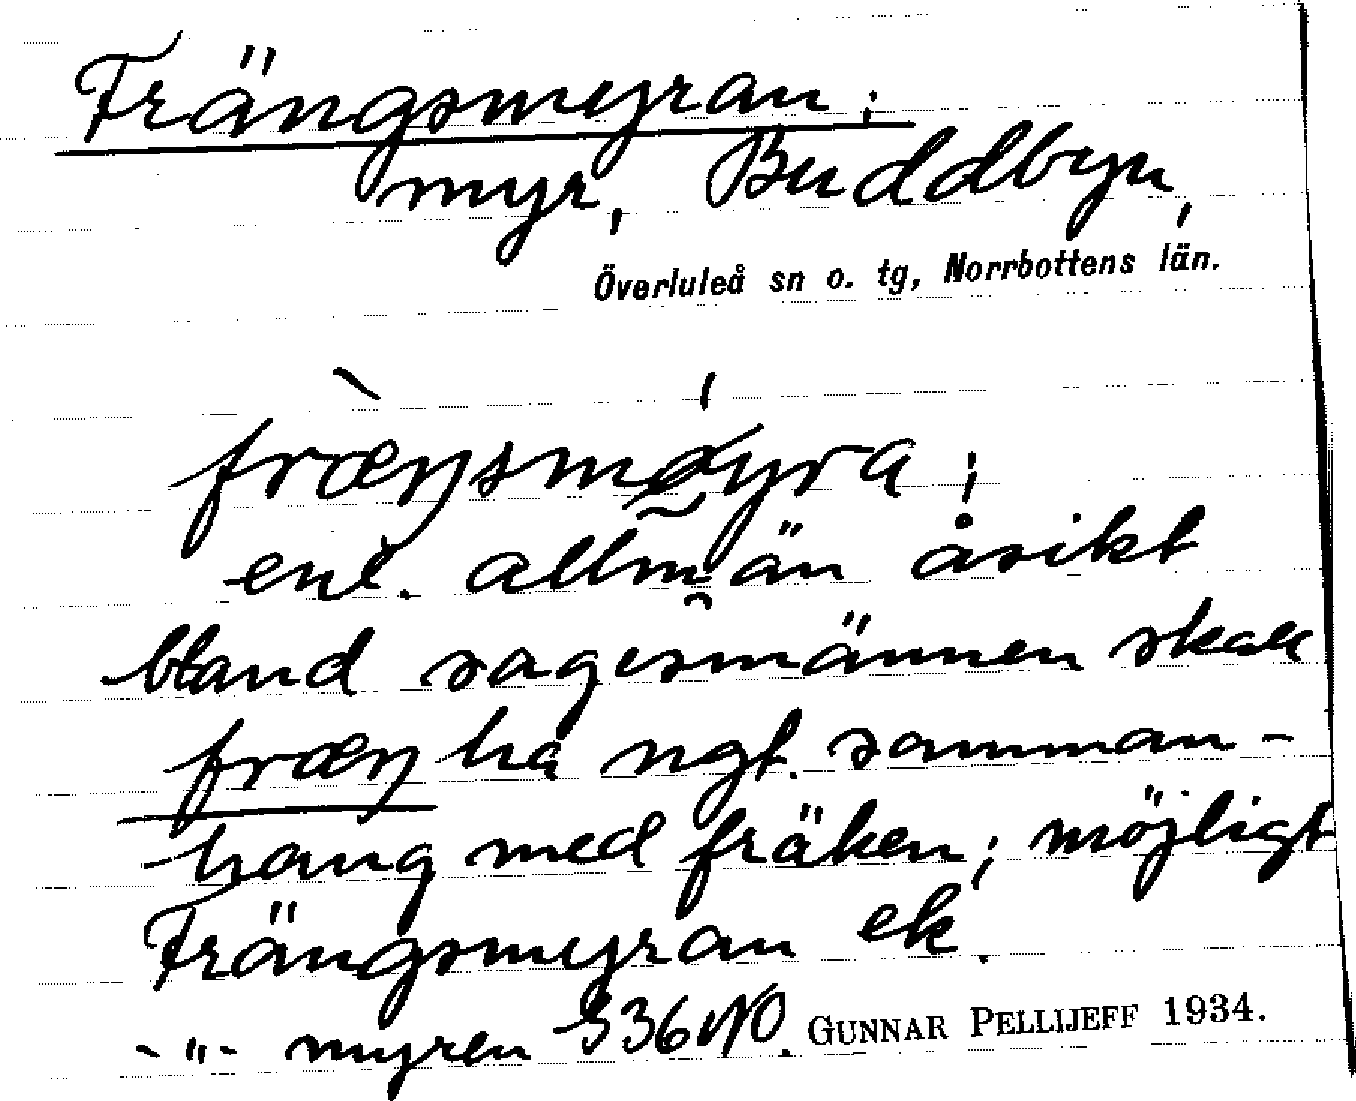 Frängsmyran;
myr, Buddbyn,
Överluleå sn o. tg, Norrbottens län.
fræŋsmøyra;
enl. allmän åsikt
bland sagesmännen skall
fræŋ ha ngt. samman-
hang med fräken; möjligt
Frängsmyran ek.
-"- myren 336 NO. GUNNAR PELLIJEFF 1934.